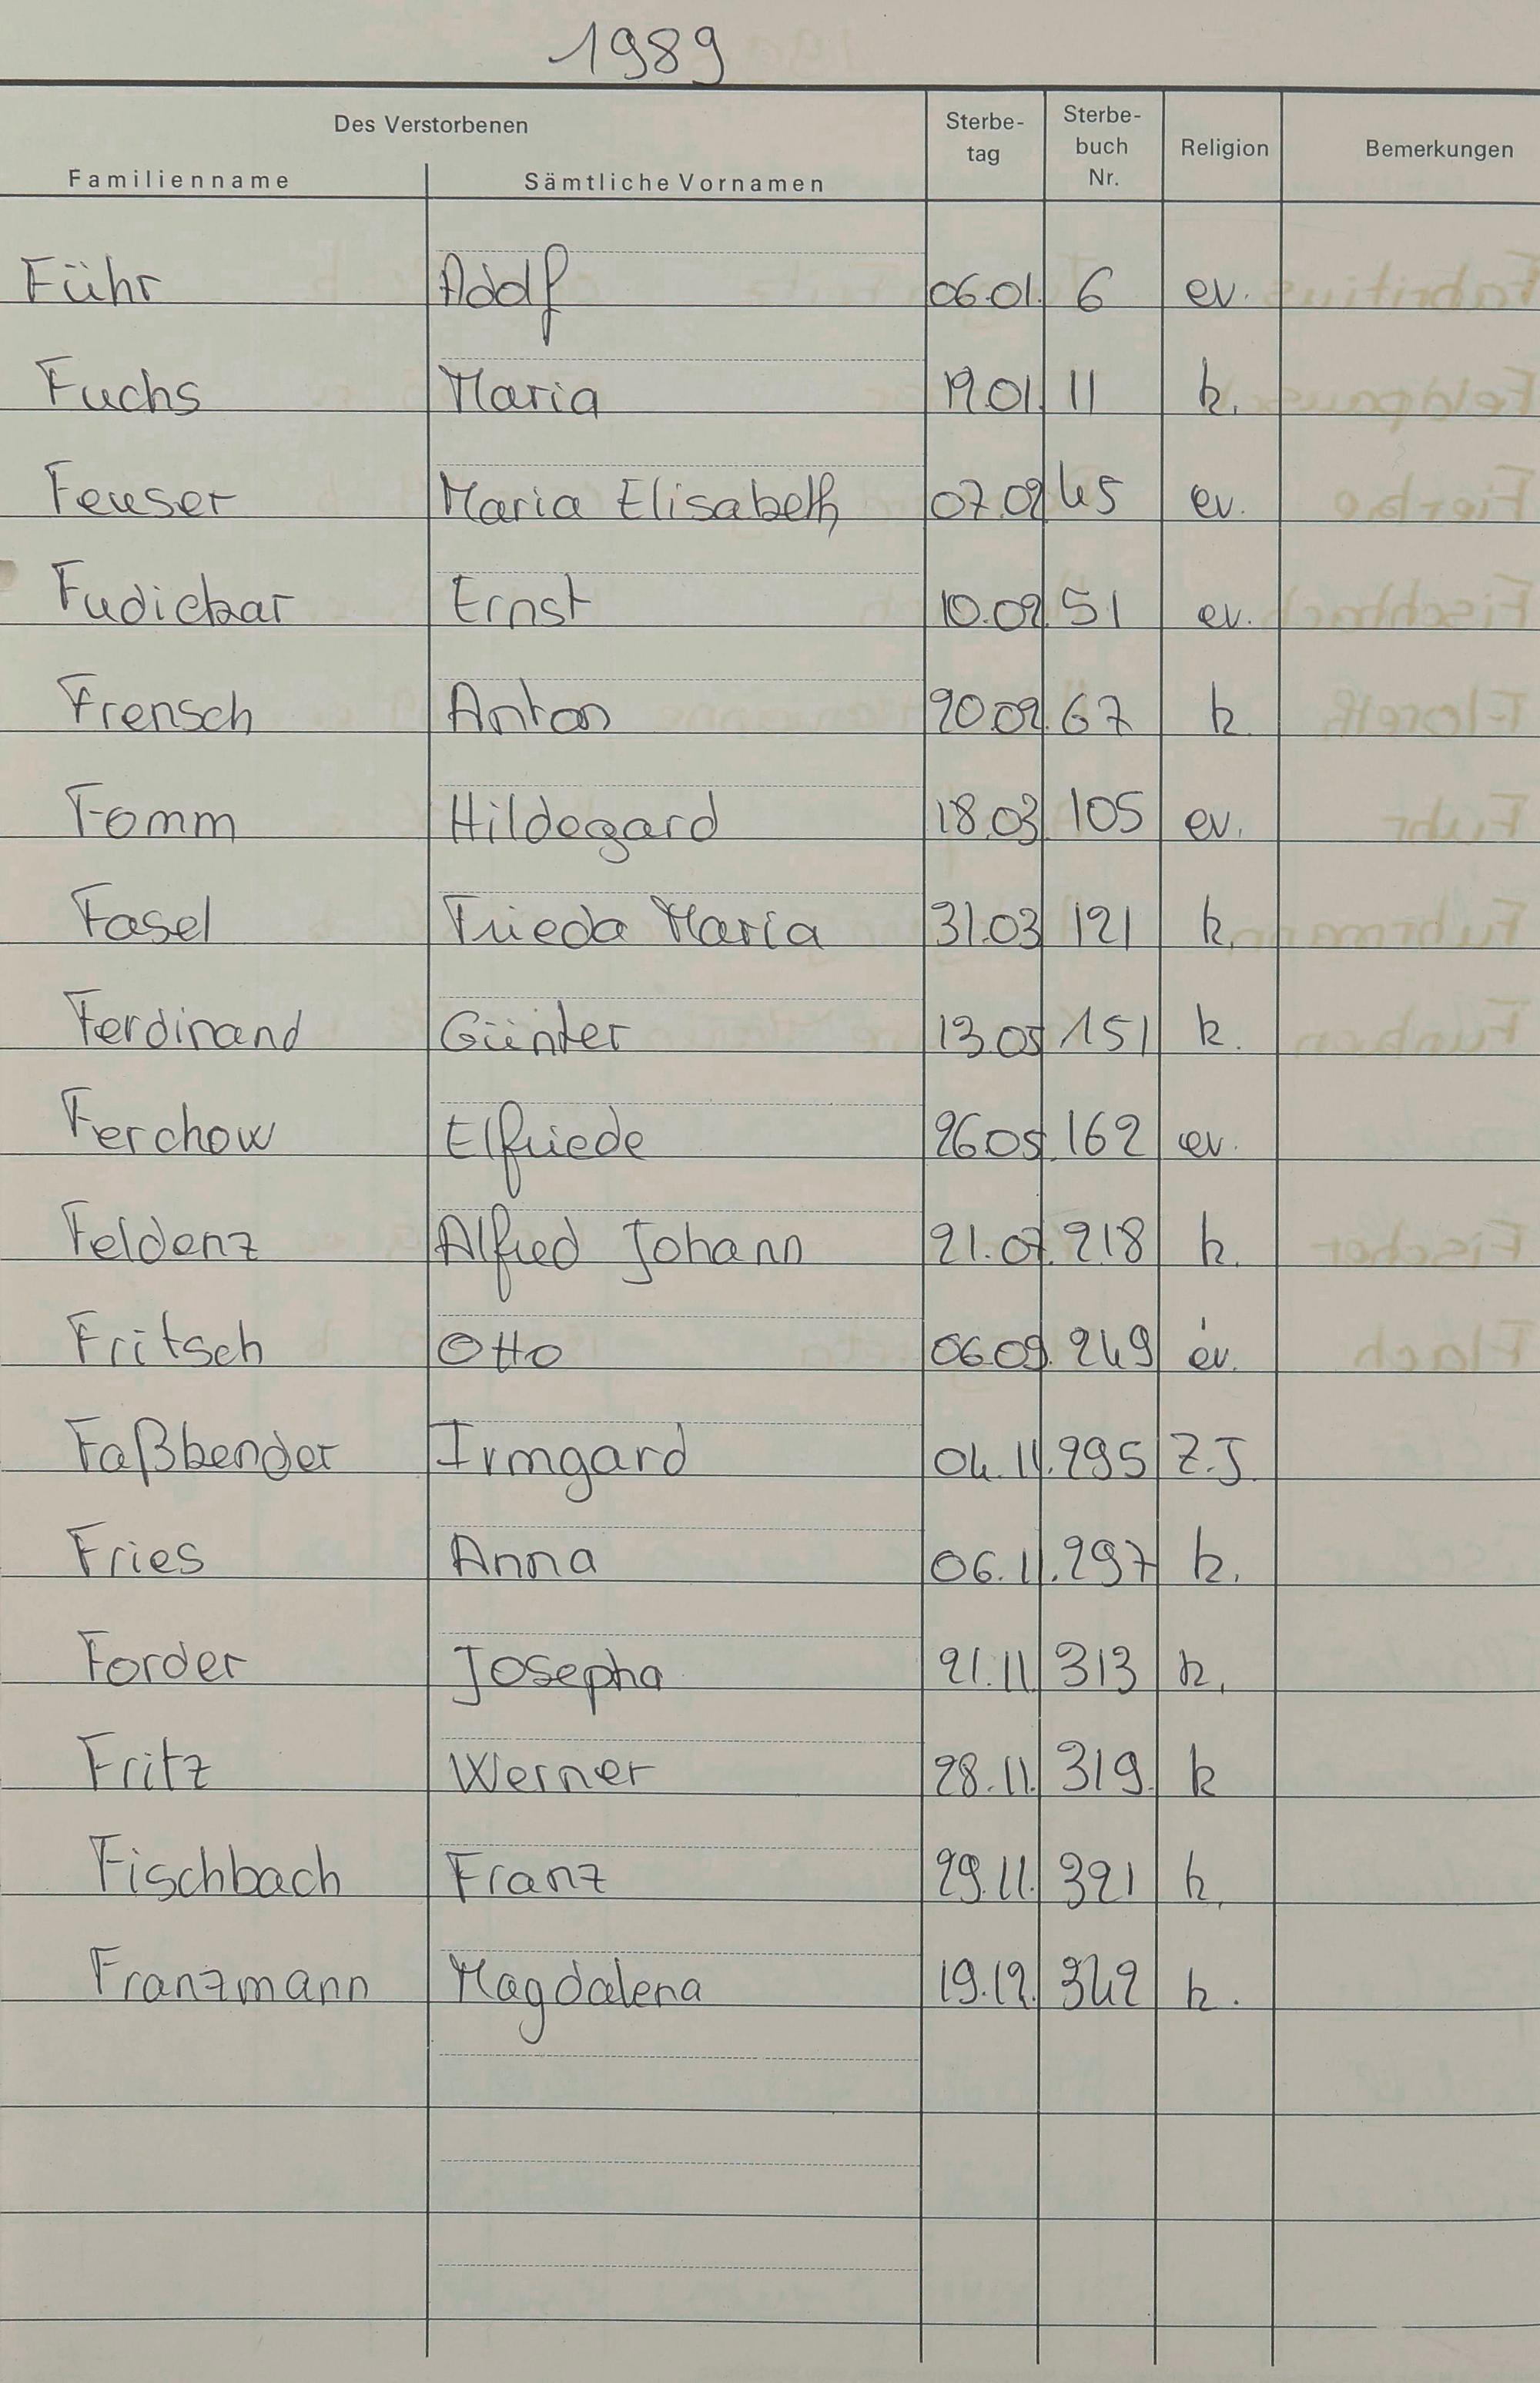 1989
Des Verstorbenen
Familienname Sämtliche Vornamen Sterbe-tag Sterbe-buch Nr. Religion Bemerkungen
Führ Adolf 06.01. 6 ev.
Fuchs Maria 19.01. 11 k.
Feuser Maria Elisabeth 07.02 45 ev.
Fudickar Ernst 10.02. 51 ev.
Frensch Anton 20.02. 67 k.
Fomm Hildegard 18.03. 105 ev.
Fasel Frieda Maria 31.03 121 k.
Ferdinand Günter 13.05 151 k.
Ferchow Elfriede 26.05. 162 ev.
Feldenz Alfred Johann 21.07. 218 k.
Fritsch Otto 06.09. 249 ev.
Faßbender Irmgard 04.11. 295 Z.J.
Fries Anna 06.11. 297 k.
Forder Josepha 21.11. 313 k.
Fritz Werner 28.11. 319. k
Fischbach Franz 29.11. 321 k.
Franzmann Magdalena 19.12. 342 k.